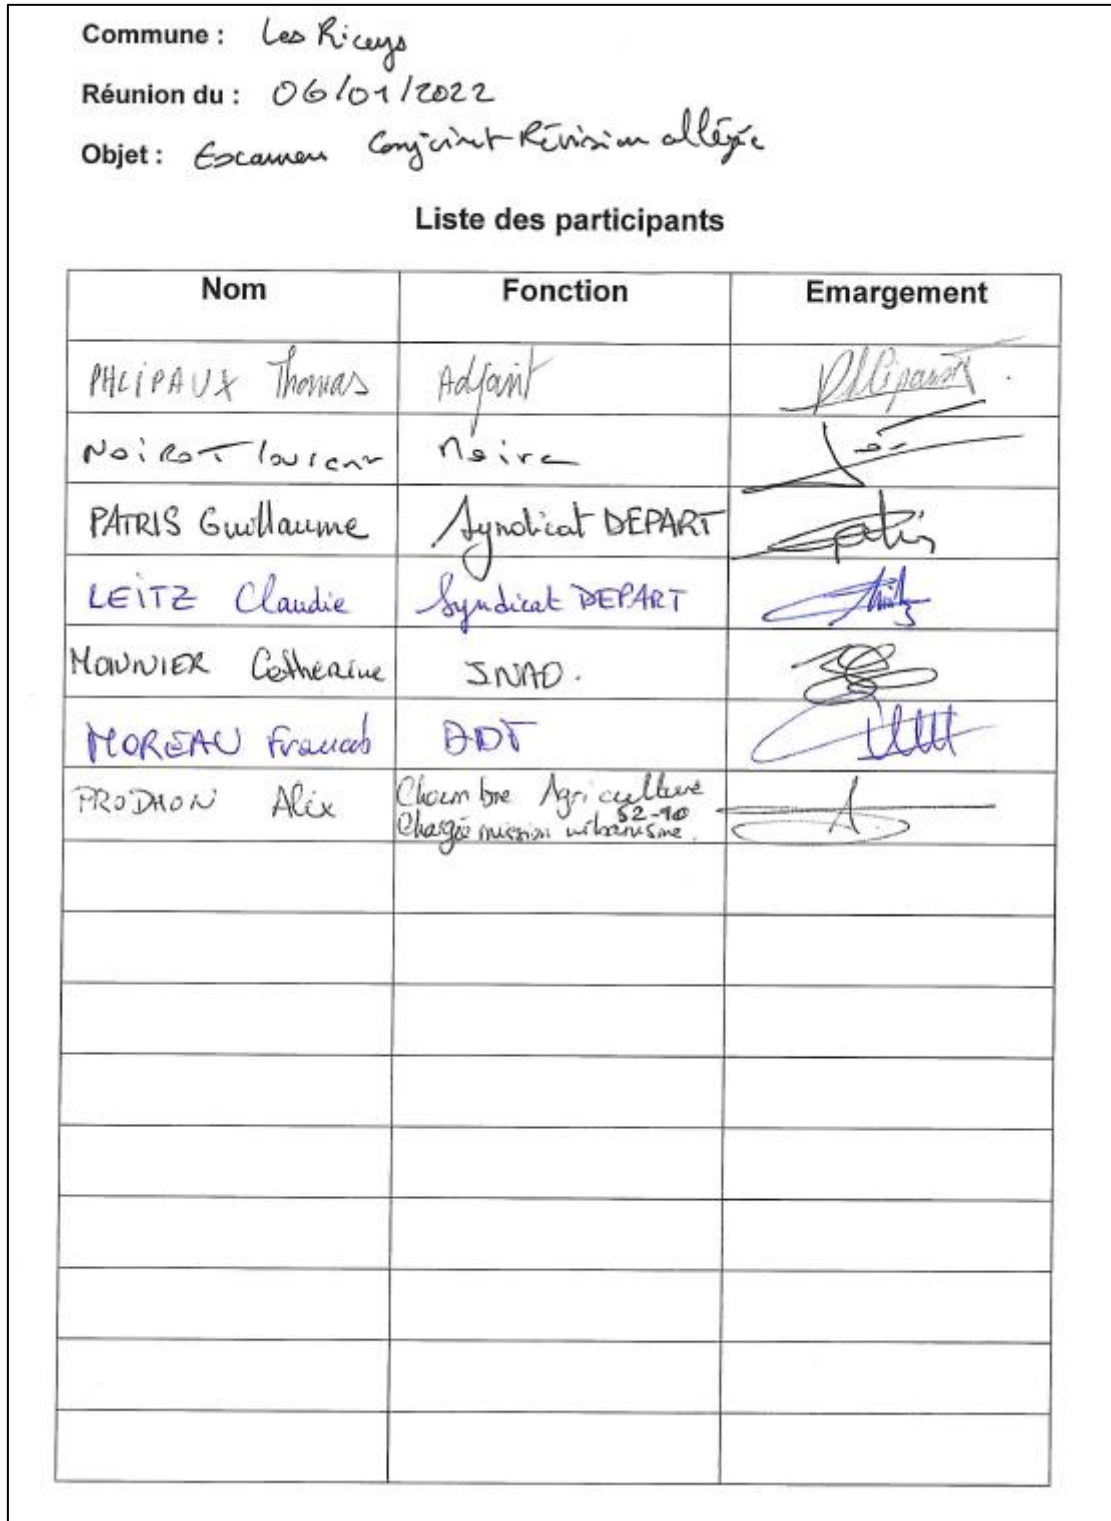 Commune : Les Riceys
Réunion du : 06/01/2022
Objet : Examen Conjoint Révision allégée
Liste des participants
Nom Fonction Emargement
PHLIPAUX Thomas Adjoint
NOIROT Laurent Maire
PATRIS Guillaume Syndicat DEPART
LEITZ Claudie Syndicat DEPART
MONNIER Catherine INAO.
MOREAU Francis DDT
PRODHON Alix Chambre Agriculture
52-10
Chargée mission urbanisme.